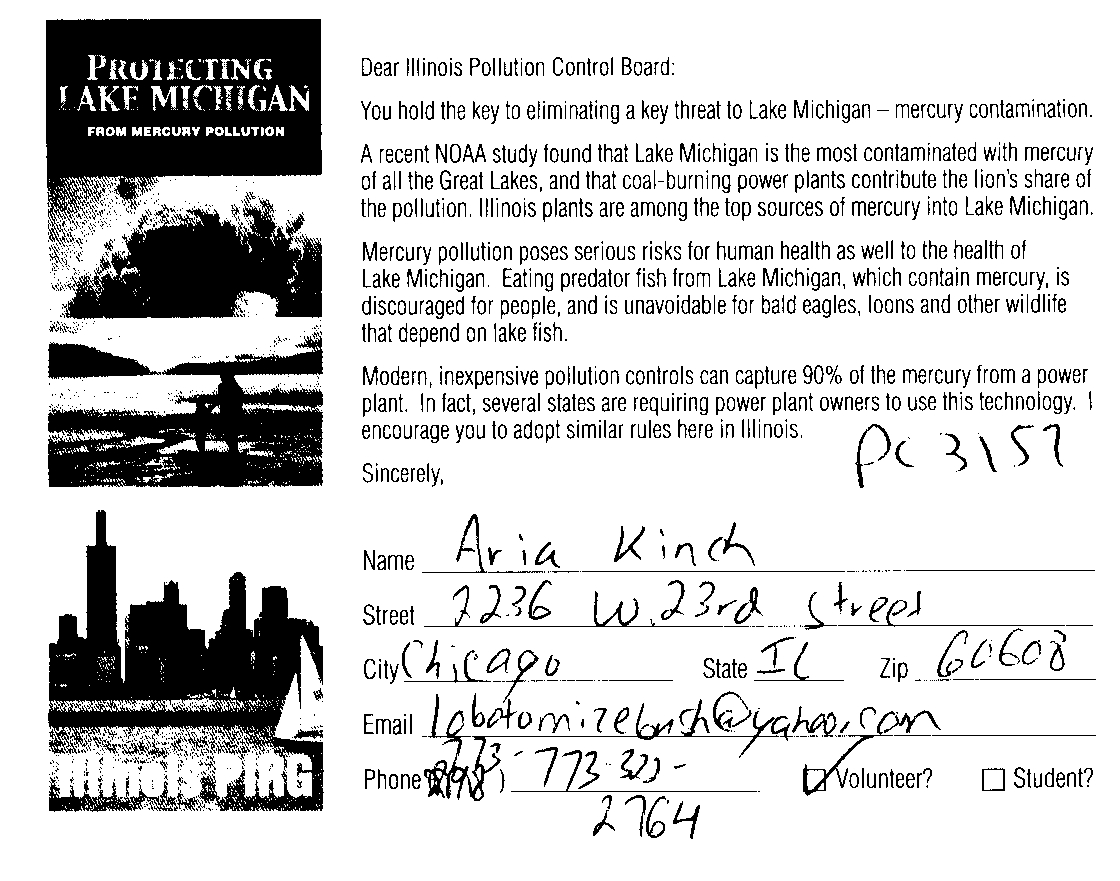 PROTECTING
LAKE MICHIGAN
FROM MERCURY POLLUTION
Illinois PIRG
Dear Illinois Pollution Control Board:
You hold the key to eliminating a key threat to Lake Michigan – mercury contamination.
A recent NOAA study found that Lake Michigan is the most contaminated with mercury
of all the Great Lakes, and that coal-burning power plants contribute the lion's share of
the pollution. Illinois plants are among the top sources of mercury into Lake Michigan.
Mercury pollution poses serious risks for human health as well to the health of
Lake Michigan. Eating predator fish from Lake Michigan, which contain mercury, is
discouraged for people, and is unavoidable for bald eagles, loons and other wildlife
that depend on lake fish.
Modern, inexpensive pollution controls can capture 90% of the mercury from a power
plant. In fact, several states are requiring power plant owners to use this technology. I
encourage you to adopt similar rules here in Illinois.
PC 3157
Sincerely,
Name Aria Kinch
Street 2236 W. 23rd Street
City Chicago State IL Zip 60608
Email lobotomizebush@yahoo.com
Phone (773) 773-322- Volunteer? Student?
2764